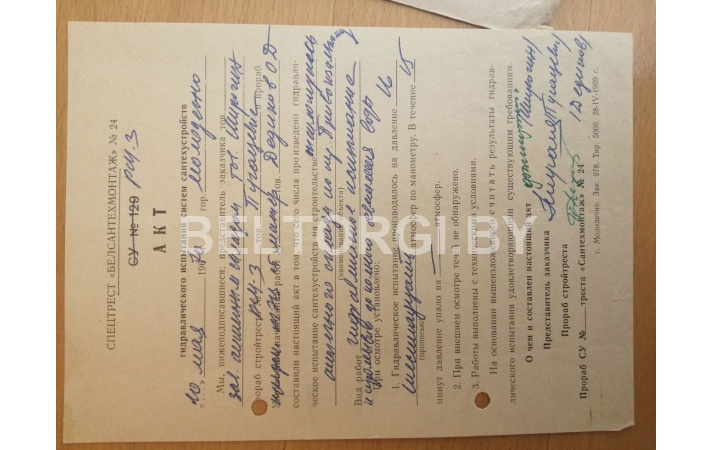 СПЕЦТРЕСТ «БЕЛСАНТЕХМОНТАЖ» № 24
СУ № 129 РСУ-3
АКТ
гидравлического испытания систем сантехустройств
"10" мая 196 г. гор. Молодечно
Мы, нижеподписавшиеся: представитель заказчика тов.
зав. аптечного склада тов. Шпигун
прораб стройтреста РСУ-3 тов. Пугачуве и прораб
участка мастер тов. Дедиков О Д
составили настоящий акт в том, что сего числа произведено гидравли-
ческое испытание сантехустройств на строительстве
аптечного склада по ул. Привокзальная
(наименование объекта)
Вид работ гидравлическое испытание
и промывка отопления воды
При осмотре установлено:
1. Гидравлическое испытание производилось на давление 16
шестнадцать атмосфер по манометру. В течение 15
(прописью)
минут давление упало на атмосфер.
2. При внешнем осмотре течи не обнаружено.
3. Работы выполнены с техническими условиями.
На основании вышеизложенного считать результаты гидрав-
лического испытания удовлетворяющими существующим требованиям.
О чем и составлен настоящий акт
Представитель заказчика
Прораб стройтреста
Прораб СУ № треста «Сантехмонтаж» № 24 Дедиков
г. Молодечно. Зак. 978. Тир. 5000. 28-IV-1969 г.
BELTORGI.BY